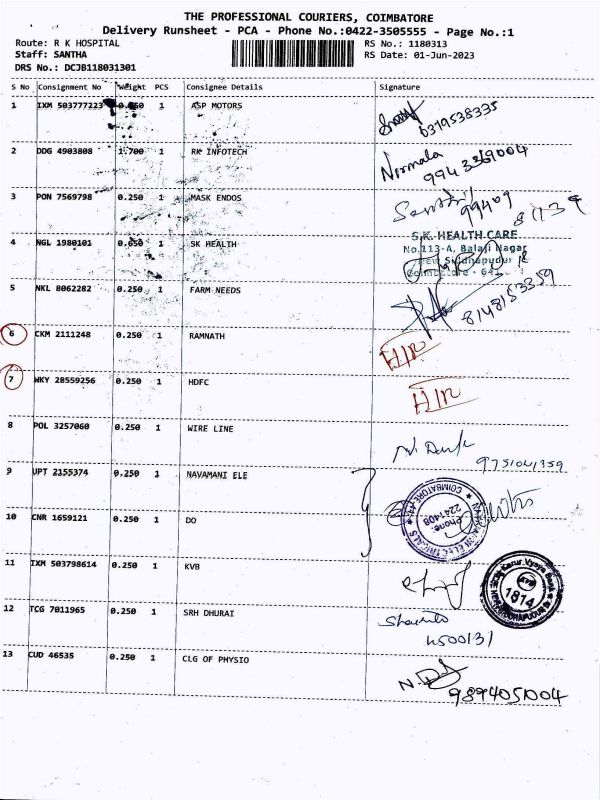 THE PROFESSIONAL COURIERS, COIMBATORE
Delivery Runsheet - PCA - Phone No.:0422-3505555 - Page No.:1
Route: R K HOSPITAL RS No.: 1180313
Staff: SANTHA RS Date: 01-Jun-2023
DRS No.: DCJB118031301
S No Consignment No Weight PCS Consignee Details Signature
1 IXM 503777223 1 ASP MOTORS
2 DDG 4903808 1.700 1 RK INFOTECH Nirmala
3 PON 7569798 0.250 1 MASK ENDOS
4 NGL 1980101 0.650 1 SK HEALTH S.K. HEALTH CARE
No.113-A, Balaji Nagar
5 NKL 8062282 0.250 1 FARM NEEDS 8148153359
6 CKM 2111248 0.250 1 RAMNATH
7 WKY 28559256 0.250 1 HDFC
8 POL 3257060 0.250 1 WIRE LINE
9 UPT 2155374 0.250 1 NAVAMANI ELE
Phone: 2241408
10 CNR 1659121 0.250 1 DO
11 IXM 503798614 0.250 1 KVB Karur Vysya Bank
1814
12 TCG 7011965 0.250 1 SRH DHURAI
13 CUD 46535 0.250 1 CLG OF PHYSIO
9894051004